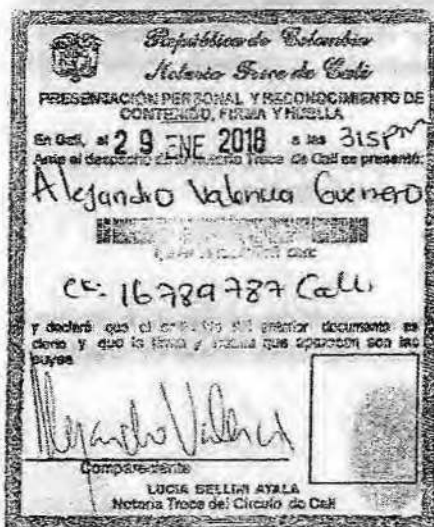 República de Colombia
Notaria Trece de Cali
PRESENTACIÓN PERSONAL Y RECONOCIMIENTO DE
CONTENIDO, FIRMA Y HUELLA
En Cali, el 29 ENE 2018 a las 315pm
Ante el despacho de la Notaria Trece de Cali se presentó:
Alejandro Valencia Guerrero
cc. 16789787 Cali
y declaró que el contenido del anterior documento es
cierto y que la firma y huella que aparecen son las
suyas
Alejandro Valencia
Compareciente
LUCIA BELLINI AYALA
Notaria Trece del Circulo de Cali